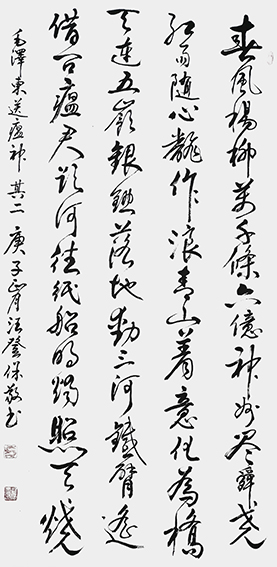 春風楊柳萬千條六億神州盡舜堯
紅雨隨心翻作浪青山着意化為橋
天連五嶺銀鋤落地動三河鐵臂遙
借問瘟君欲何往紙船明燭照天燒
毛澤東送瘟神其二 庚子正月 登保敬书